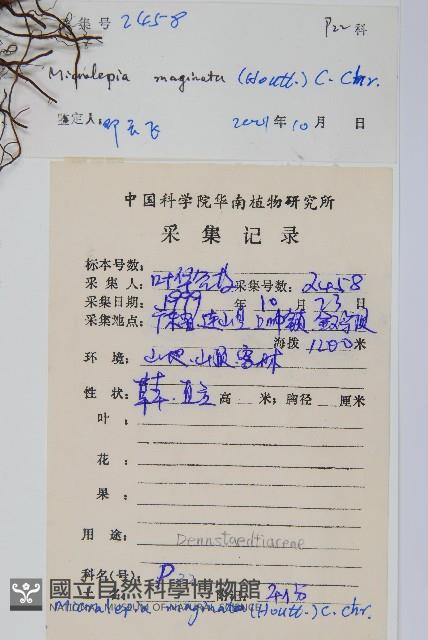 采集号 2458 P22 科
Microlepia maginata (Houtt.) C. Chr.
鉴定人: 邓云飞 2001年10月 日
中国科学院华南植物研究所
采集记录
标本号数:
采集人: 叶华谷 采集号数: 2458
采集日期: 1999 年 10 月 23 日
采集地点: 连山县上帅镇
海拨 1200 米
环境: 山地、山
性状: 草、直立 高 米; 胸径 厘米
叶:
花:
果:
用途: Dennstaedtiaceae
科名(号) P22
國立自然科學博物館
NATIONAL MUSEUM OF NATURAL SCIENCE
Microlepia marginata (Houtt.) C. Chr.